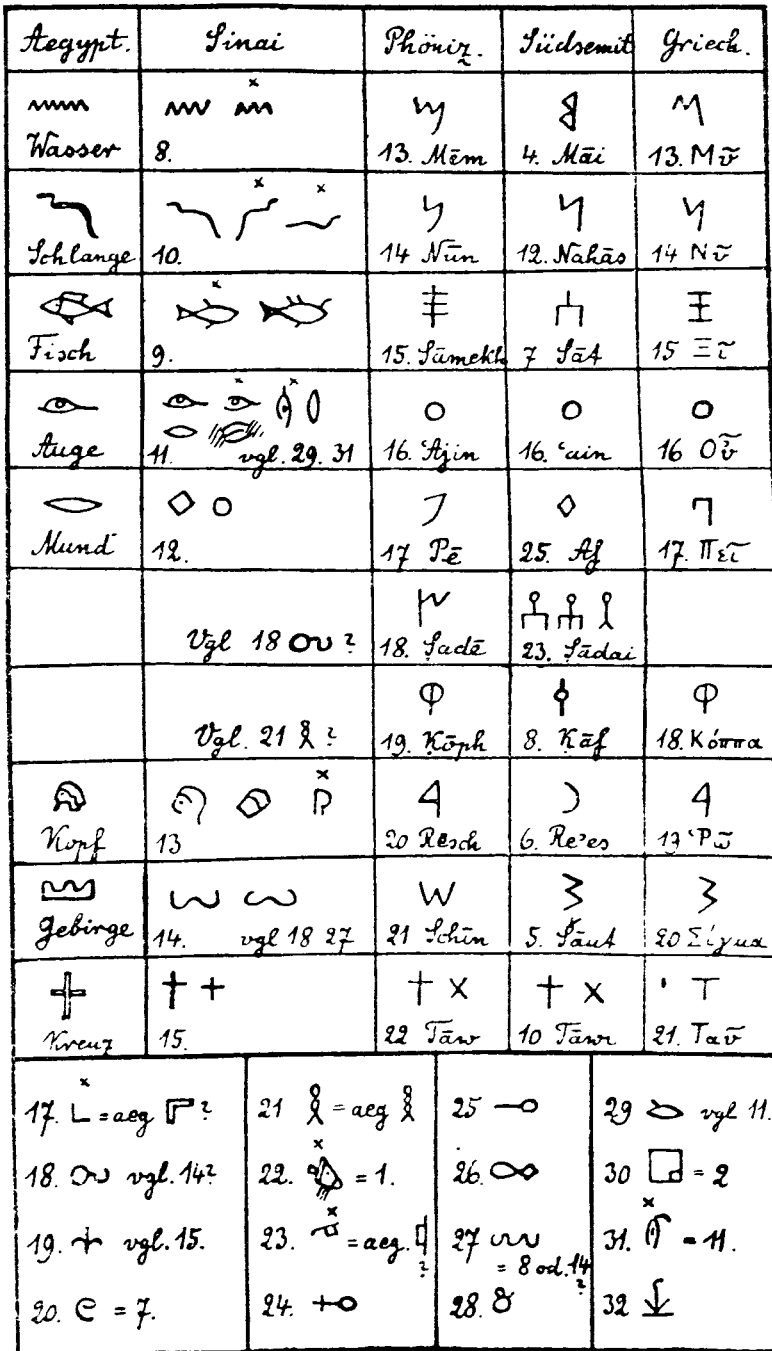 Aegypt. Sinai Phöniz. Südsemit Griech.
Wasser 8. 13. Mēm 4. Māi 13. Μῦ
Schlange 10. 14 Nūn 12. Nahās 14 Νῦ
Fisch 9. 15. Sāmekh 7 Sāt 15 Ξῖ
Auge 11. vgl. 29. 31 16. ʿAjin 16. ʿain 16 Οὖ
Mund 12. 17 Pē 25. Af 17. Πεῖ
Vgl 18 ? 18. Ṣadē 23. Ṣādai
Vgl. 21 ? 19. Ḳōph 8. Ḳāf 18. Κόππα
Kopf 13 20 Resch 6. Reʾes 19 Ῥῶ
Gebirge 14. vgl 18 27 21 Schīn 5. Šāut 20 Σίγμα
Kreuz 15. 22 Tāw 10 Tāwi 21. Ταῦ
17. = aeg ?
18. vgl. 14?
19. vgl. 15.
20. = 7.
21 = aeg
22. = 1.
23. = aeg. ?
24.
25
26.
27 = 8 od. 14 ?
28.
29 vgl 11.
30 = 2
31. = 11.
32